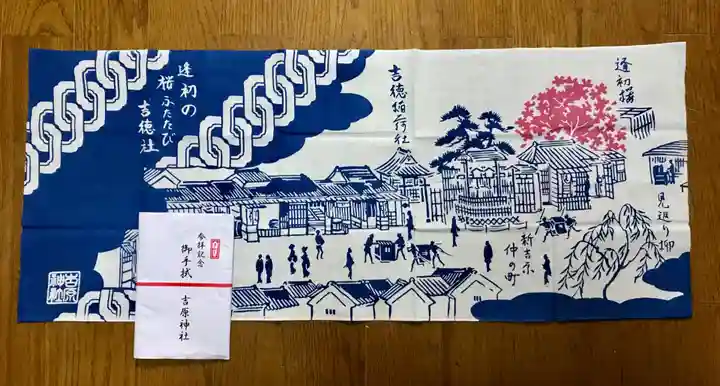 逢初の
桜ふたたび
吉徳社
吉徳稲荷社
逢初桜
見返り柳
新吉原
仲の町
吉原
神社
参拝記念
御手拭
吉原神社